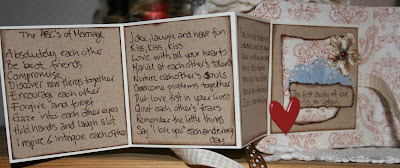 The ABC's of Marriage
Absolutely each other
Be best friends
Compromise
Discover new things together
Encourage each other
Forgive and forget
Gaze into each other eyes
Hold hands and laugh alot
Inspire & intrigue each other
Joke, laugh and have fun
Kiss, kiss, kiss
Love with all your hearts
Marvel at each other's talents
Nurture each other's souls
Overcome problems together
Put love first in your lives
Quiet each other's fears
Remember the little things
Say "I love you" each and every
day
The first duty of love
is to listen